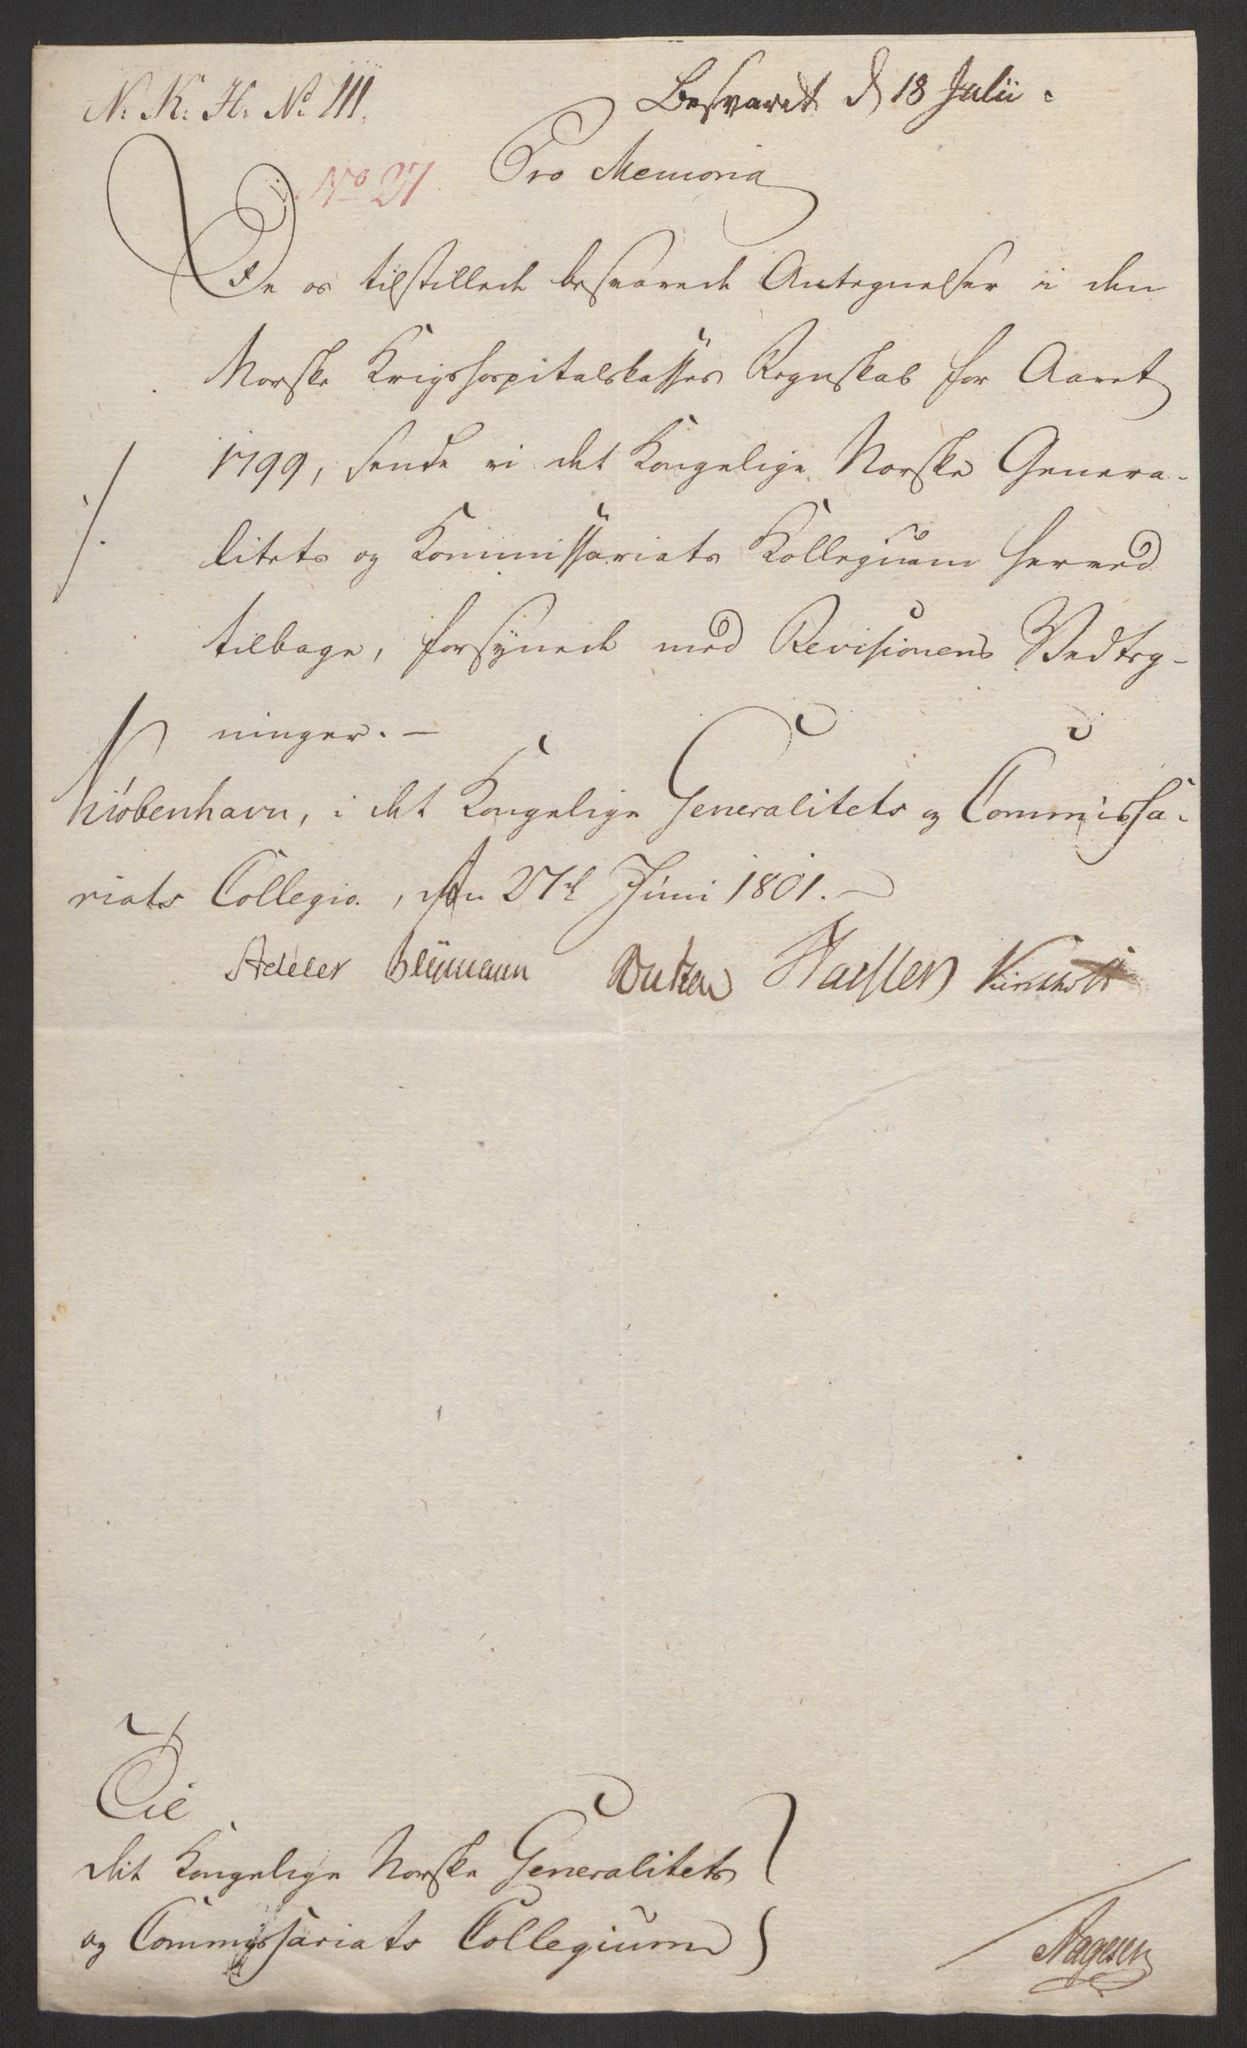 N. K. H. No 111.
Besvaret d 18 Julii.
No 27
Pro Memoria
De os tilstillede besvarede Antegnelser i den
Norske Krigshospitalskasses Regnskab for Aaret
1799, sende vi det Kongelige Norske Genera-
litets og Kommissariats Kollegium herved
tilbage, forsynede med Revisionens Vedteg-
ninger. -
Kiöbenhavn, i det Kongelige Generalitets og Commissa-
riats Collegio, den 27d Juni 1801. -
Adeler Blümann
Til
det Kongelige Norske Generalitets
og Commissariats Collegium
Aagesen